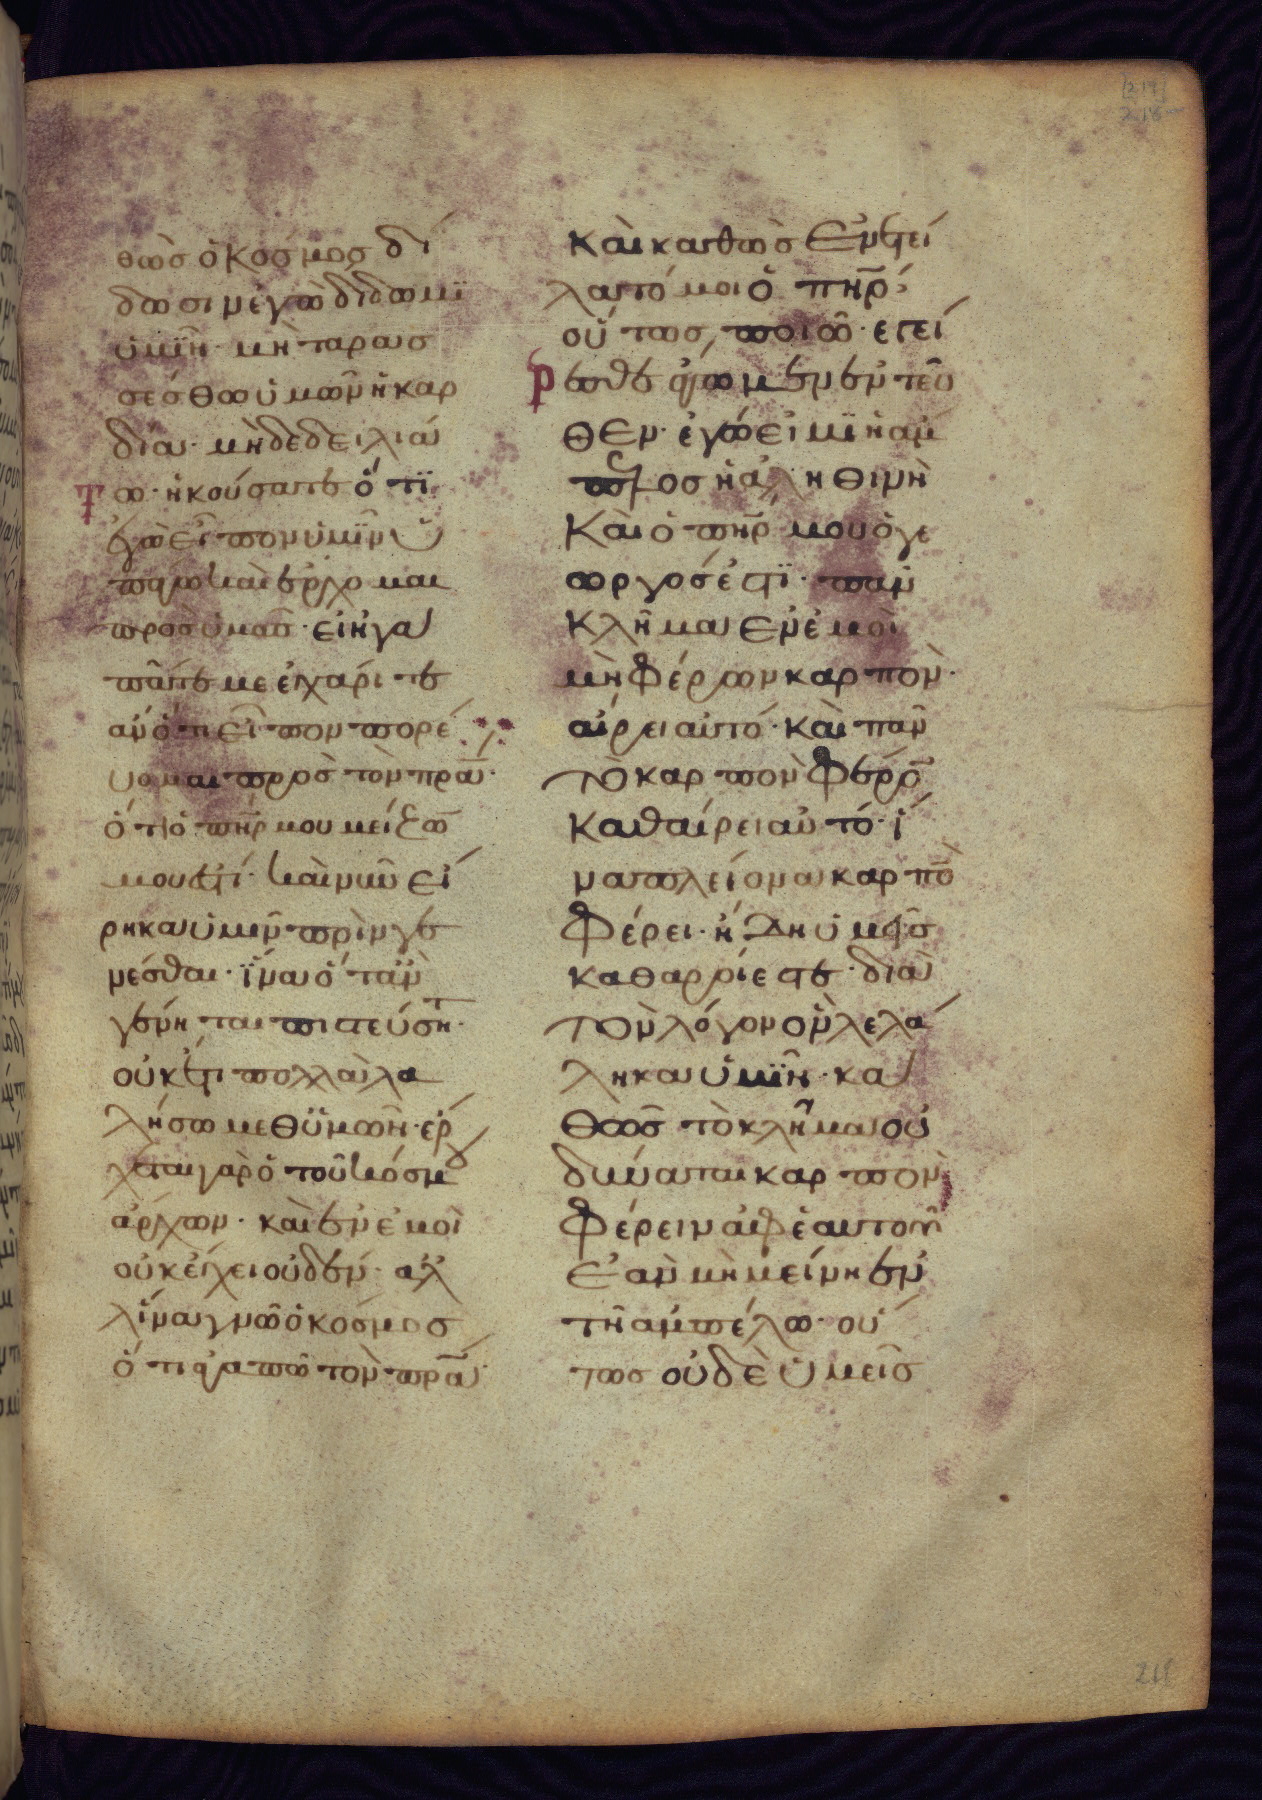 θὼς ὁ κόσμος δί
δωσιν ἐγὼ δίδωμϊ
ὑμῖν· μὴ ταρας
σέσθω ὑμῶν ἡ καρ
δία· μὴ δὲ δειλιά
τω· ἠκούσατε ὅτϊ
ἐγὼ εἶπον ὑμῖν ὑ
πάγω καὶ ἔρχομαι
πρὸς ὑμᾶς· εἰ ἠγα
πᾶτέ με ἐχάρητε
ἂν ὅτι εἶπον πορέ
υομαι πρὸς τὸν πρα̅·
ὅτι ὁ πηρ̅ μου μείζω̅
μου ἐστί· καὶ νῦν εἴ
ρηκα ὑμῖν πρὶν γε
νέσθαι· ἵνα ὅταν
γένηται πιστεύσητ·
οὐκέτι πολλὰ λα
λήσω μεθ ὑμῶν· ἔρ
χεται γὰρ ὁ τοῦ κόσμου
ἄρχων· καὶ ἐν ἐμοὶ
οὐκ ἔχει οὐδέν· ἀλ
λ ἵνα γνῶ ὁ κόσμος
ὅτι ἀγαπῶ τὸν πρα̅·
καὶ καθὼς ἐνετεί
λατό μοι ὁ πηρ̅·
οὕτως ποιῶ· ἐγεί
ρεσθε ἄγωμεν ἐντεῦ
θεν· ἐγώ εἰμϊ ἡ ἄμ
πελος ἡ ἀληθινὴ
καὶ ὁ πηρ̅ μου ὁ γε
ωργός ἐστϊ· πᾶν
κλῆμα ἐν ἐμοὶ
μὴ φέρων καρπὸν·
αἴρει αὐτό· καὶ πᾶν
τὸ καρπὸν φέρο̅
καθαίρει αὐτό· ἵ
να πλείονα καρπὸ̅
φέρει· ἤδη ὑμεῖς
καθαροί ἐστε· διὰ
τὸν λόγον ὃν λελά
ληκα ὑμῖν· κα
θὼς τὸ κλῆμα οὐ
δύναται καρπὸν
φέρειν ἀφ ἑαυτοῦ
ἐὰν μὴ μείνη ἐν
τῆ ἀμπέλω· οὕ
τως οὐδὲ ὑμεῖς
218